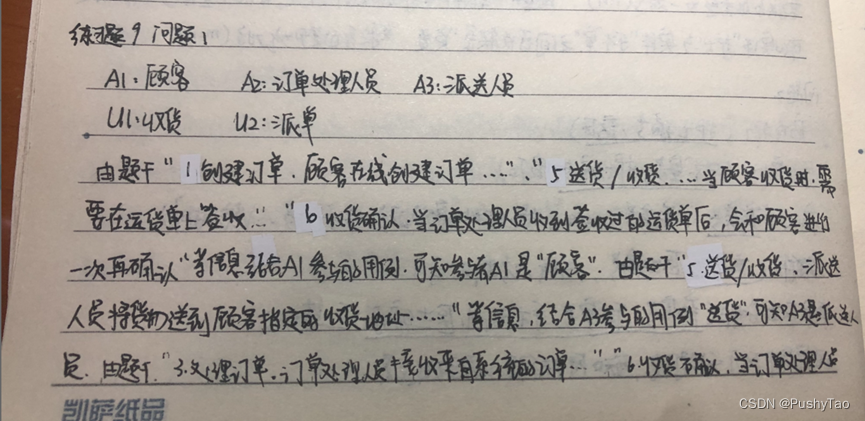 练习题9 问题1
A1:顾客 A2:订单处理人员 A3:派送人员
U1:收货 U2:派单
由题干"1创建订单.顾客在线创建订单……"、"5送货/收货.…当顾客收货时,需
要在运货单上签收…""6收货确认.当订单处理人员收到签收过的运货单后,会和顾客进行
一次再确认"等信息结合A1参与的用例.可知参与者A1是"顾客".由题干"5.送货/收货.派送
人员将货物送到顾客指定的收货地址……"等信息,结合A3参与的用例"送货"可知A3是派送人
员.由题干."3.处理订单.订单处理人员 来自系统的订单…""6.收货确认,当订单处理人员
凯萨纸品
CSDN @PushyTao